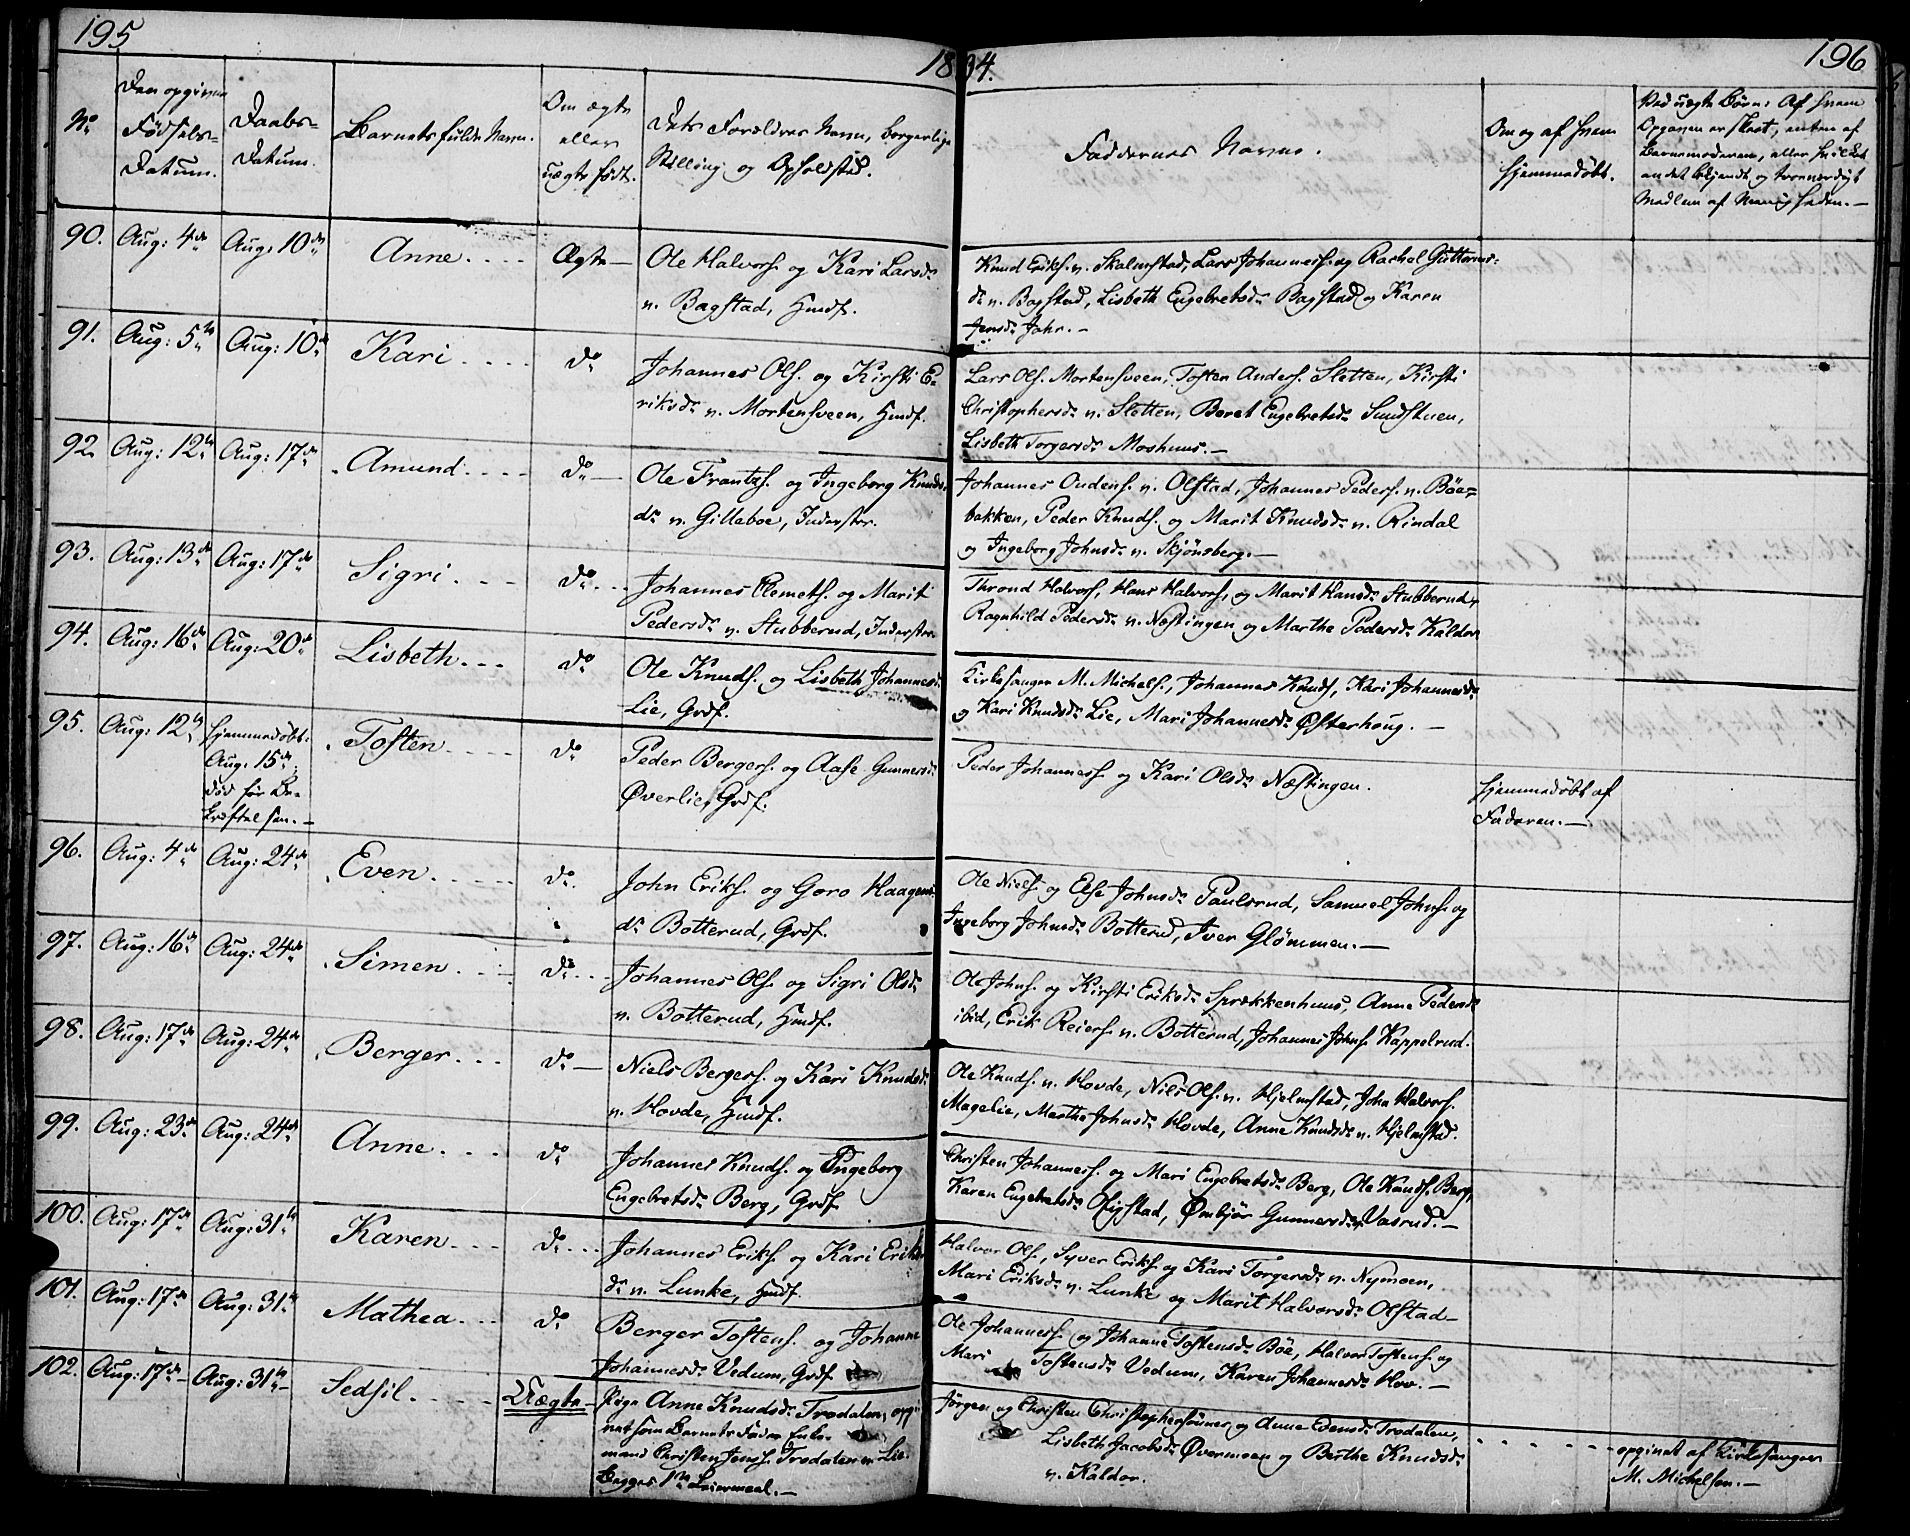 195
1834.
196
No
Den opgivne
Fødsels-
Datum.
Daabs-
Datum.
Barnets fulde Navn.
Om ægte
eller
uægte født.
Dets Forældres Navn, borgerlige
Stilling og Opholdsted.
Faddernes Navne.
Om og af hvem
hjemmedøbt.
Ved uægte Børn: Af hvem
Opgaven er skeet, enten af
Barnemoderen, eller hvilket
andet bekjendt og troværdigt
Medlem af Menigheden.-
90. Aug: 4de Aug: 10de Anne.... Ægte- Ole Halvors. og Kari Larsdr
n. Bagstad, Huusf.
Knud Eriks. n. Skalmstad, Lars Johanness. og Rachel Guttorms-
dr n. Bagstad, Lisbeth Engebretsdr Bagstad og Karen
Jensdr Jahr.-
91. Aug: 5te Aug: 10de Kari.... do Johannes Ols. og Kirsti E-
riksdr n. Mortensveen, Huusf.
Lars Ols. Mortensveen, Tosten Anders. Sletten, Kirsti
Christophersdr n. Sletten, Beret Engebretsdr Sundstuen,
Lisbeth Torgersdr Moshuus.-
92. Aug: 12te Aug: 17de Amund.... do- Ole Frantzs. og Ingeborg Knuds-
dr n. Gilleboe, Inderster.
Johannes Oudens. n. Olstad, Johannes Peders. n. Böe-
bakken, Peder Knuds. og Marit Knudsdr n. Rindal
og Ingeborg Johnsdr n. Skjönsberg.-
93. Aug: 13de Aug: 17de Sigri... do... Johannes Clemets. og Marit
Pedersdr n. Stubberud, Inderster.
Thrond Halvors., Hans Halvors., og Marit Hansdr Stubberud,
Ragnhild Pedersdr n. Næstingen og Marthe Pedersdr Kaldor
94. Aug: 16de Aug: 20de Lisbeth... do Ole Knuds. og Lisbeth Johannesdr
Lie, Grdf.
Kirkesanger M. Michels., Johannes Knuds., Kari Johannesdr
og Kari Knudsdr Lie, Mari Johannesdr Østerhoug.-
95. Aug: 12te hjemmedøbt
Aug. 15de
död før Be-
kræftelsen.-
Tosten.... do Peder Bergers. og Aase Gunnersdr
Øverlie, Grdf.
Peder Johanness. og Kari Olsdr Næstingen.
hjemmedøbt af
Faderen.-
96. Aug: 4de Aug: 24de Even..... do. John Eriks. og Goro Haagens-
dr Botterud, Grdf.
Ole Niels. og Else Johnsdr Paulsrud, Samuel Johns. og
Ingeborg Johnsdr Botterud, Iver Glömmen.-
97. Aug: 16de Aug: 24de Simen.... do... Johannes Ols. og Sigri Olsdr
n. Botterud, Huusf.
Ole Johns. og Kirsti Eriksdr Sprækkenhuus, Anne Pedersdr
ibid, Erik Reiers. n. Botterud, Johannes Johns. Kappelrud.
98. Aug: 17de Aug: 24de Berger... do- Niels Bergers. og Kari Knudsdr
n. Hovde, Huusf.
Ole Knuds. n. Hovde, Nils Ols. n. Hjelmstad, John Halvors.
Magelie, Marthe Johnsdr Hovde, Anne Knudsdr n. Hjelmstad.
99. Aug: 23de Aug: 24de Anne.... do Johannes Knuds. og Ingeborg
Engebretsdr Berg, Grdf.
Christen Johanness. og Mari Engebretsdr Berg, Ole Knuds. Berg,
Karen Engebretsdr Rigstad, Ømbjör Gunnersdr Vasrud.-
100. Aug: 17de Aug: 31te Karen... do... Johannes Eriks. og Kari Eriks-
dr n. Lunke, Huusf.
Halvor Ols., Syver Eriks. og Kari Torgersdr n. Nymoen,
Mari Eriksdr n. Lunke og Marit Halvorsdr Olstad-
101. Aug: 17de Aug: 31te Mathea... do Berger Tostens. og Johanne
Johannesdr Vedum, Grdf.
Ole Johanness. og Johanne Tostensdr Böe, Halvor Tostens. og
Mari Tostensdr Vedum, Karen Johannesdr Hov.-
102. Aug: 17de- Aug: 31te- Sedsil.... Uægte- Pige Anne Knudsdr Trodalen, opgi-
net som Barnets Fader Enke-
mand Christen Jens. Trodalen n. Lie.
Begges 1ste Leiermaal.-
Jörgen og Christen Christophersönner og Anne Evensdr Trodalen,
Lisbeth Jacobsdr Øvermoen og Berthe Knudsdr
n. Kaldor.
opgivet af Kirkesanger
M. Michelsen.-